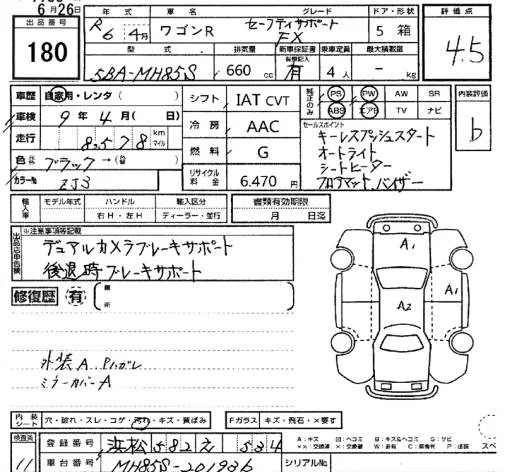 6月26日
出品番号
180
年式 車名 グレード ドア・形状 評価点
R6 4月 ワゴンR セーフティサポート FX 5 箱 4.5
型式 排気量 新車保証書 乗車定員 最大積載量
5BA-MH85S 660cc 有 4人 - kg
車歴 自家用・レンタ( )
車検 9年4月( 日)
走行 82578 km マイル
色 ブラック→( )
カラーNo. ZJ3
シフト IAT CVT
冷房 AAC
燃料 G
リサイクル料金 6.470円
純正のみ PS PW AW SR
ABS エアB TV ナビ
内装評価
b
セールスポイント
キーレスプッシュスタート
オートライト
シートヒーター
フロアマット、バイザー
輸入車 モデル年式 ハンドル 右H・左H 輸入区分 ディーラー・並行
書類有効期限 月 日迄
出品店申告欄
※注意事項等記載
デュアルカメラブレーキサポート
後退時ブレーキサポート
修復歴 有 箇所
A1
A1
A2
外装A
ミラーカバーA
内装シート 穴・破れ・スレ・コゲ・汚れ・キズ・黄ばみ
Fガラス キズ・飛石・×要す
検査員
11
登録番号 浜松 582 え 534
車台番号 MH85S-201936
シリアルNo.